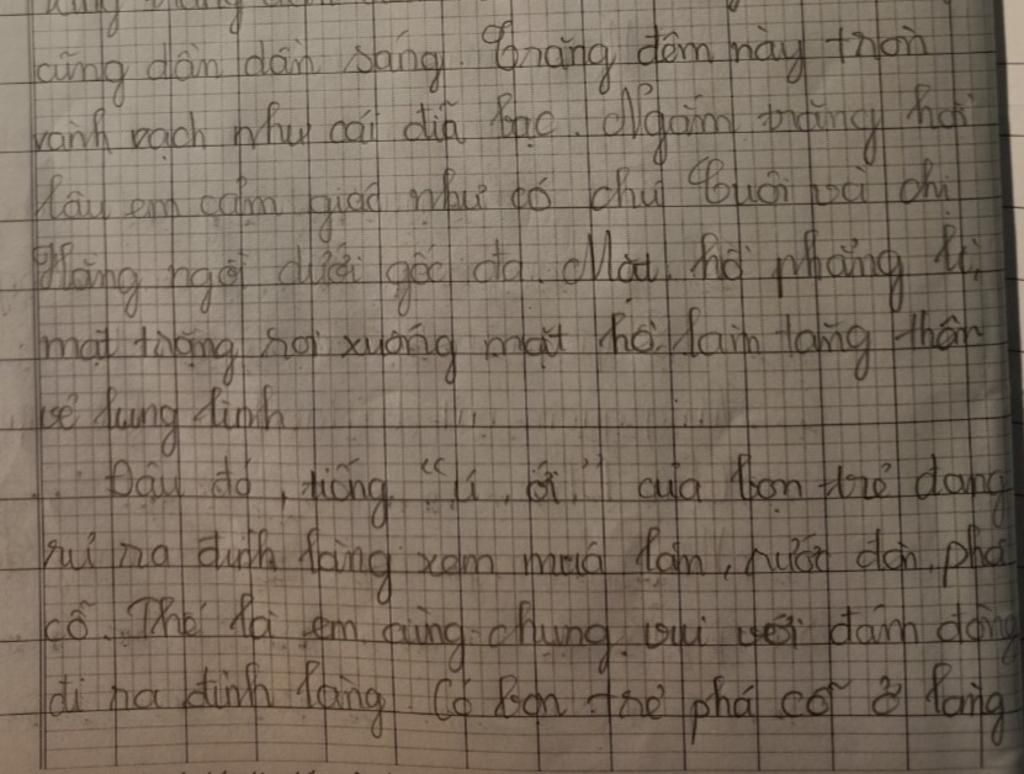 cũng dần dần sáng. Trăng đêm nay tròn
vành vạch như cái đĩa bạc. Ngắm trăng hồi
lâu em cảm giác như có chú Cuội và chị
Hằng ngồi dưới gốc đa. Mặt hồ phẳng lì,
mặt trăng soi xuống mặt hồ làm tăng thêm
vẻ lung linh
Đâu đó, tiếng "í ới" của bọn trẻ đang
rủ ra đình làng xem múa lân, rước đèn, phá
cỗ. Thế là em cùng chung vui với đám đông
đi ra đình làng. Có bọn trẻ phá cỗ ở làng